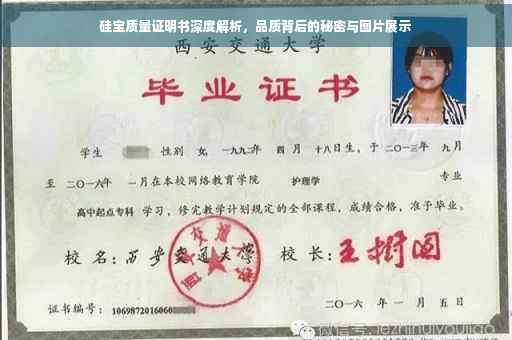 硅宝质量证明书深度解析，品质背后的秘密与图片展示
西安交通大学
毕业证书
学生 性别 女，一九九二年 四月 十八日生，于二〇一三年 九月
至 二〇一六年 一月在本校网络教育学院 护理学 专业
高中起点专科 学习，修完教学计划规定的全部课程，成绩合格，准予毕业。
校名：西安交通大学 校长：王树国
西安交通大学
证书编号：1069872016060
二〇一六年 一月 五日
微信号: jezhihuiyoujiao